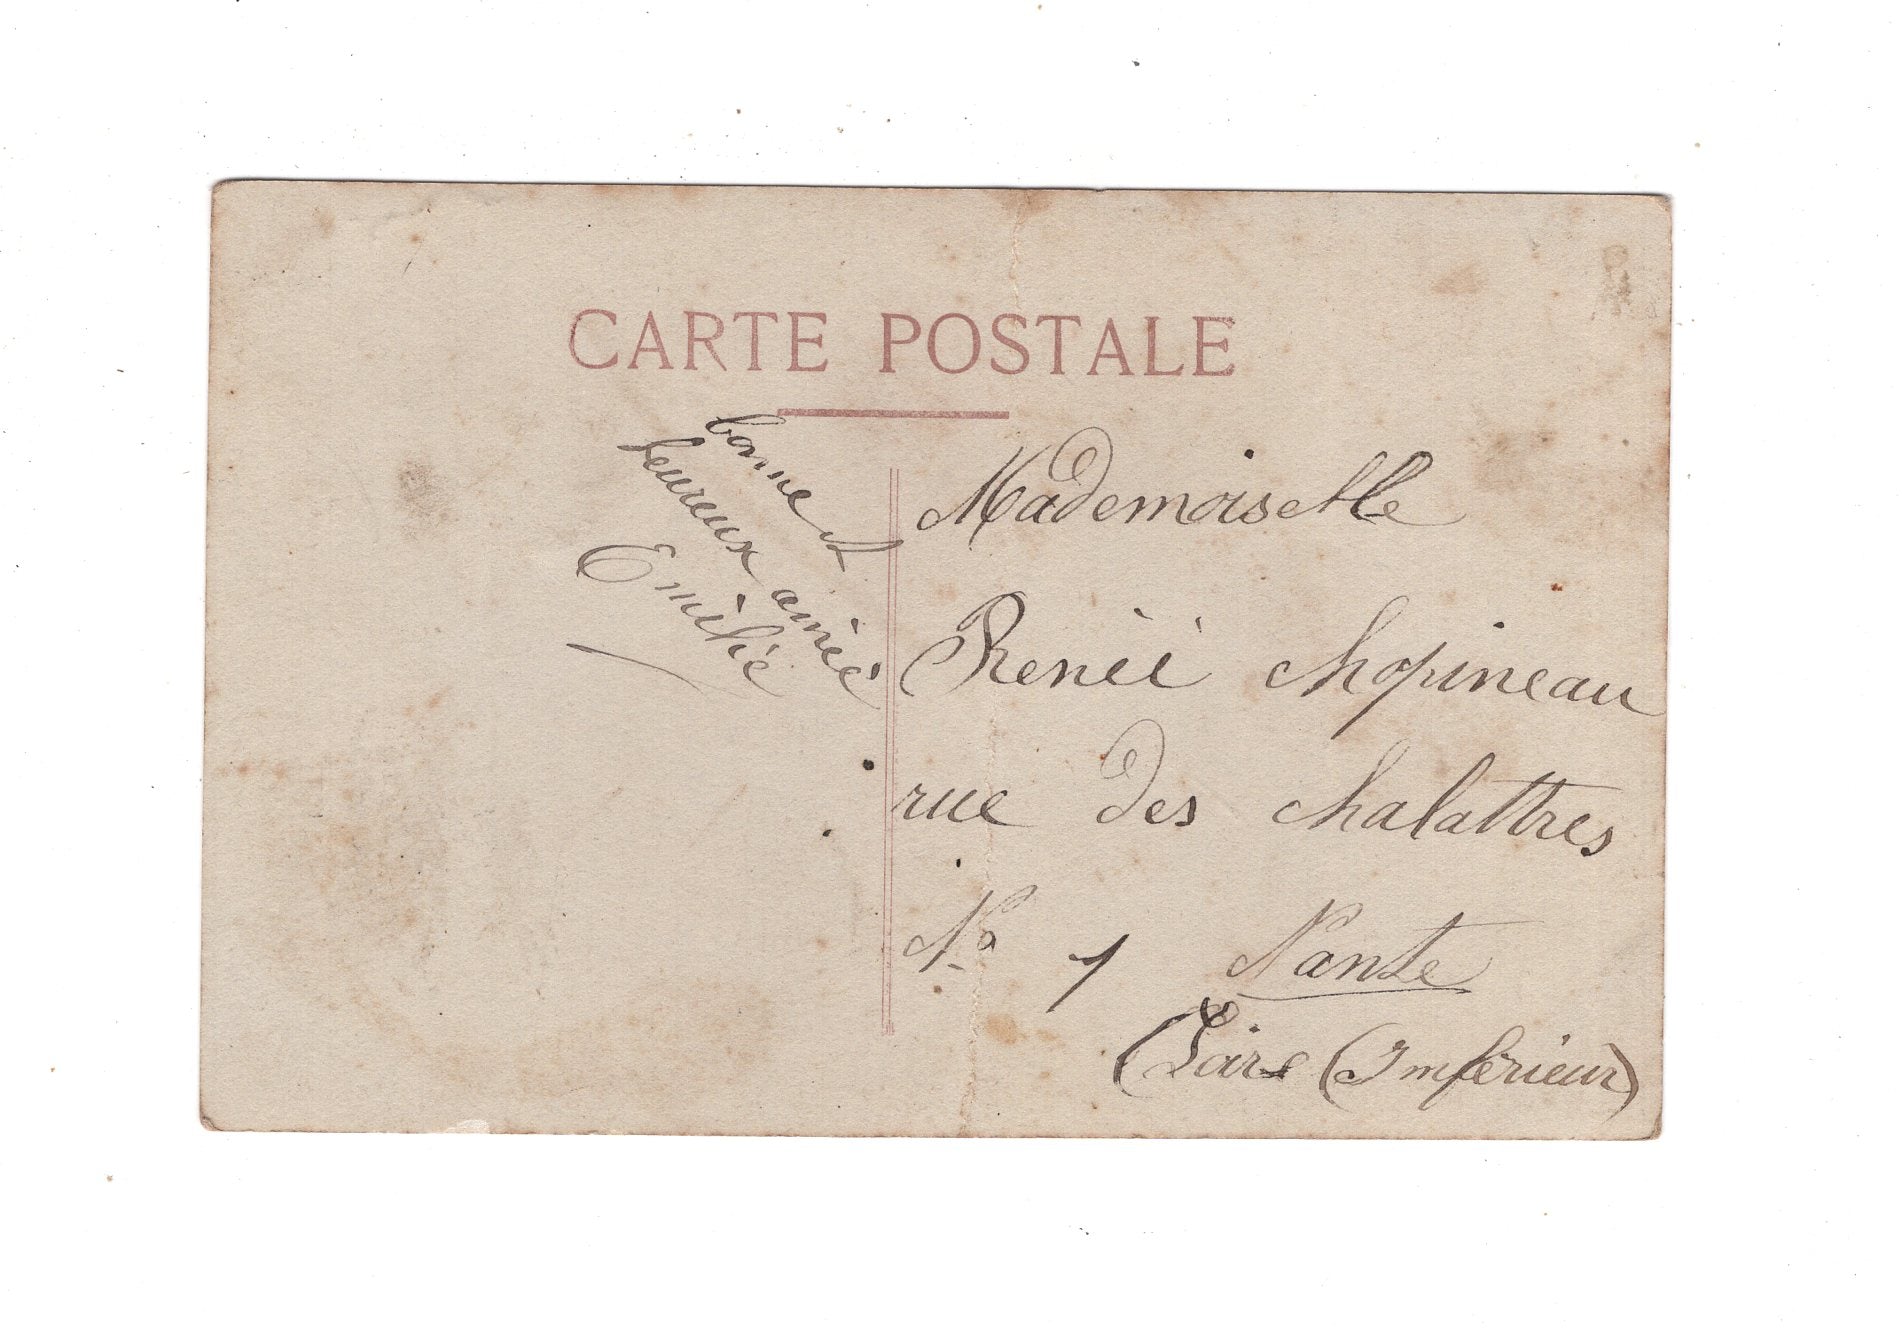 CARTE POSTALE
bonne et
heureux année
Emilie
Mademoiselle
Renée Chopineau
rue des Chalattres
No 1 Nante
(Loire (Inférieur)